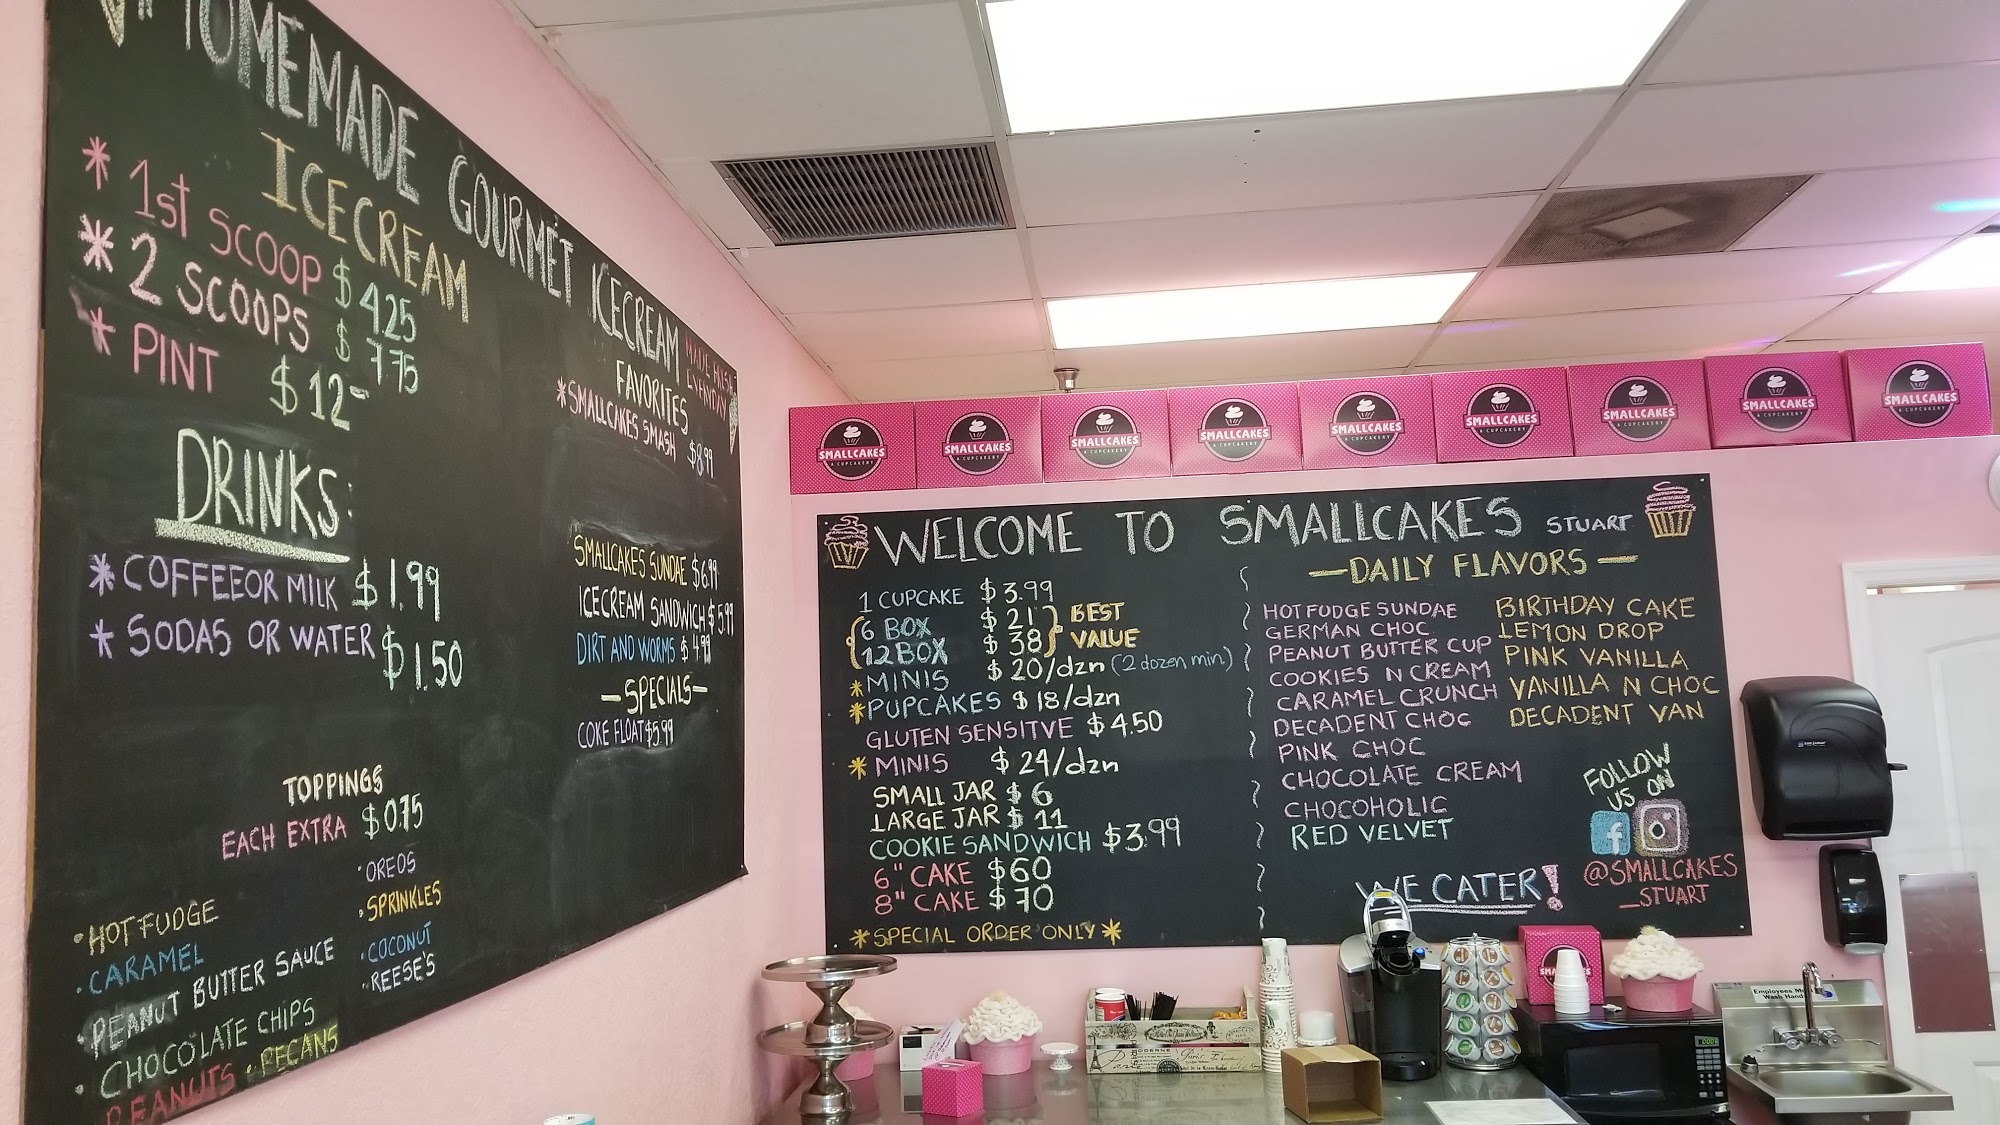 HOMEMADE GOURMET ICECREAM
MADE FRESH
EVERYDAY
ICECREAM
* 1st SCOOP $4.25
* 2 SCOOPS $7.75
* PINT $12-
DRINKS:
* COFFEEOR MILK $1.99
* SODAS OR WATER $1.50
TOPPINGS
EACH EXTRA $0.75
·HOT FUDGE
·CARAMEL
·PEANUT BUTTER SAUCE
·CHOCOLATE CHIPS
PEANUTS ·PECANS
·OREOS
·SPRINKLES
·COCONUT
·REESE'S
FAVORITES
*SMALLCAKES SMASH $8.99
SMALLCAKES SUNDAE $6.99
ICECREAM SANDWICH $5.99
DIRT AND WORMS $4.99
—SPECIALS—
COKE FLOAT $5.99
SMALLCAKES
A CUPCAKERY
SMALLCAKES
A CUPCAKERY
SMALLCAKES
A CUPCAKERY
SMALLCAKES
A CUPCAKERY
SMALLCAKES
A CUPCAKERY
SMALLCAKES
A CUPCAKERY
SMALLCAKES
A CUPCAKERY
SMALLCAKES
A CUPCAKERY
SMALLCAKES
A CUPCAKERY
WELCOME TO SMALLCAKES STUART
1 CUPCAKE $3.99
6 BOX $21
12 BOX $38
BEST
VALUE
*MINIS $20/dzn (2 dozen min.)
*PUPCAKES $18/dzn
GLUTEN SENSITVE $4.50
*MINIS $24/dzn
SMALL JAR $6
LARGE JAR $11
COOKIE SANDWICH $3.99
6" CAKE $60
8" CAKE $70
*SPECIAL ORDER ONLY*
—DAILY FLAVORS—
HOT FUDGE SUNDAE
GERMAN CHOC
PEANUT BUTTER CUP
COOKIES N CREAM
CARAMEL CRUNCH
DECADENT CHOC
PINK CHOC
CHOCOLATE CREAM
CHOCOHOLIC
RED VELVET
BIRTHDAY CAKE
LEMON DROP
PINK VANILLA
VANILLA N CHOC
DECADENT VAN
WE CATER!
FOLLOW
US ON
f
@SMALLCAKES
_STUART
Employees Must
Wash Hands